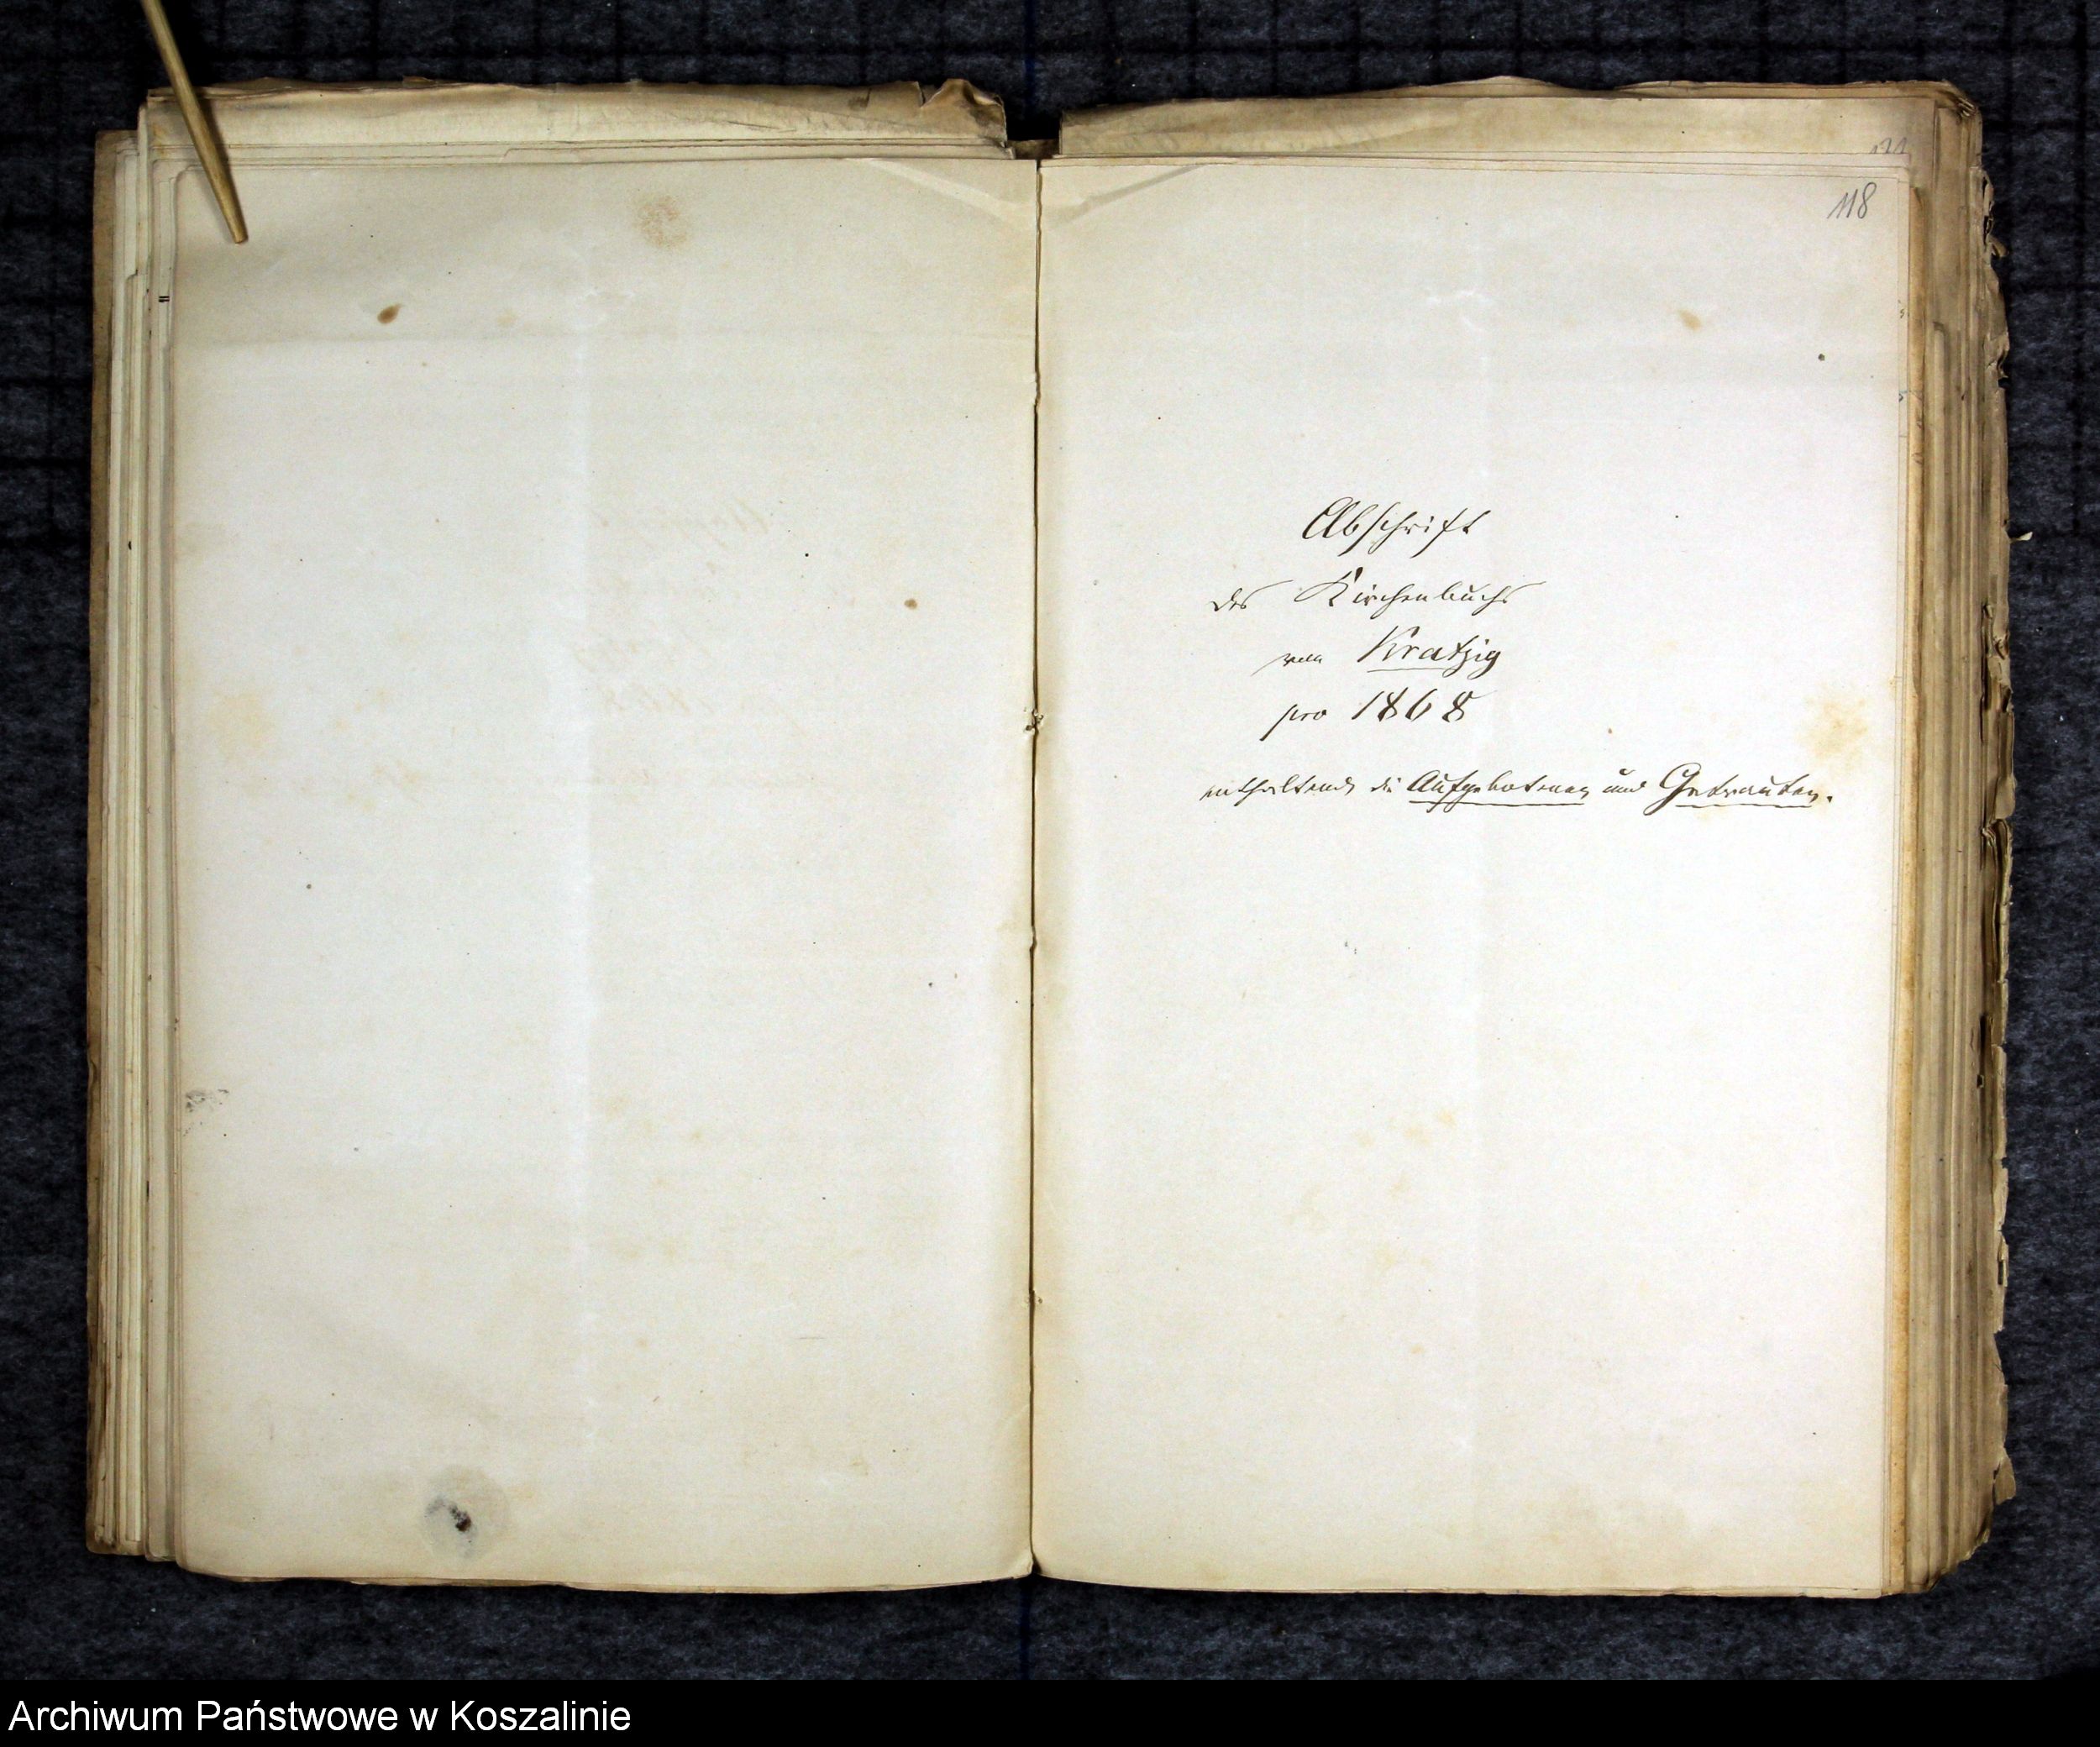 118
Abschrift
des Kirchenbuchs
von Kratzig
pro 1868
enthaltend die Aufgebotenen und Getrauten.
Archiwum Państwowe w Koszalinie